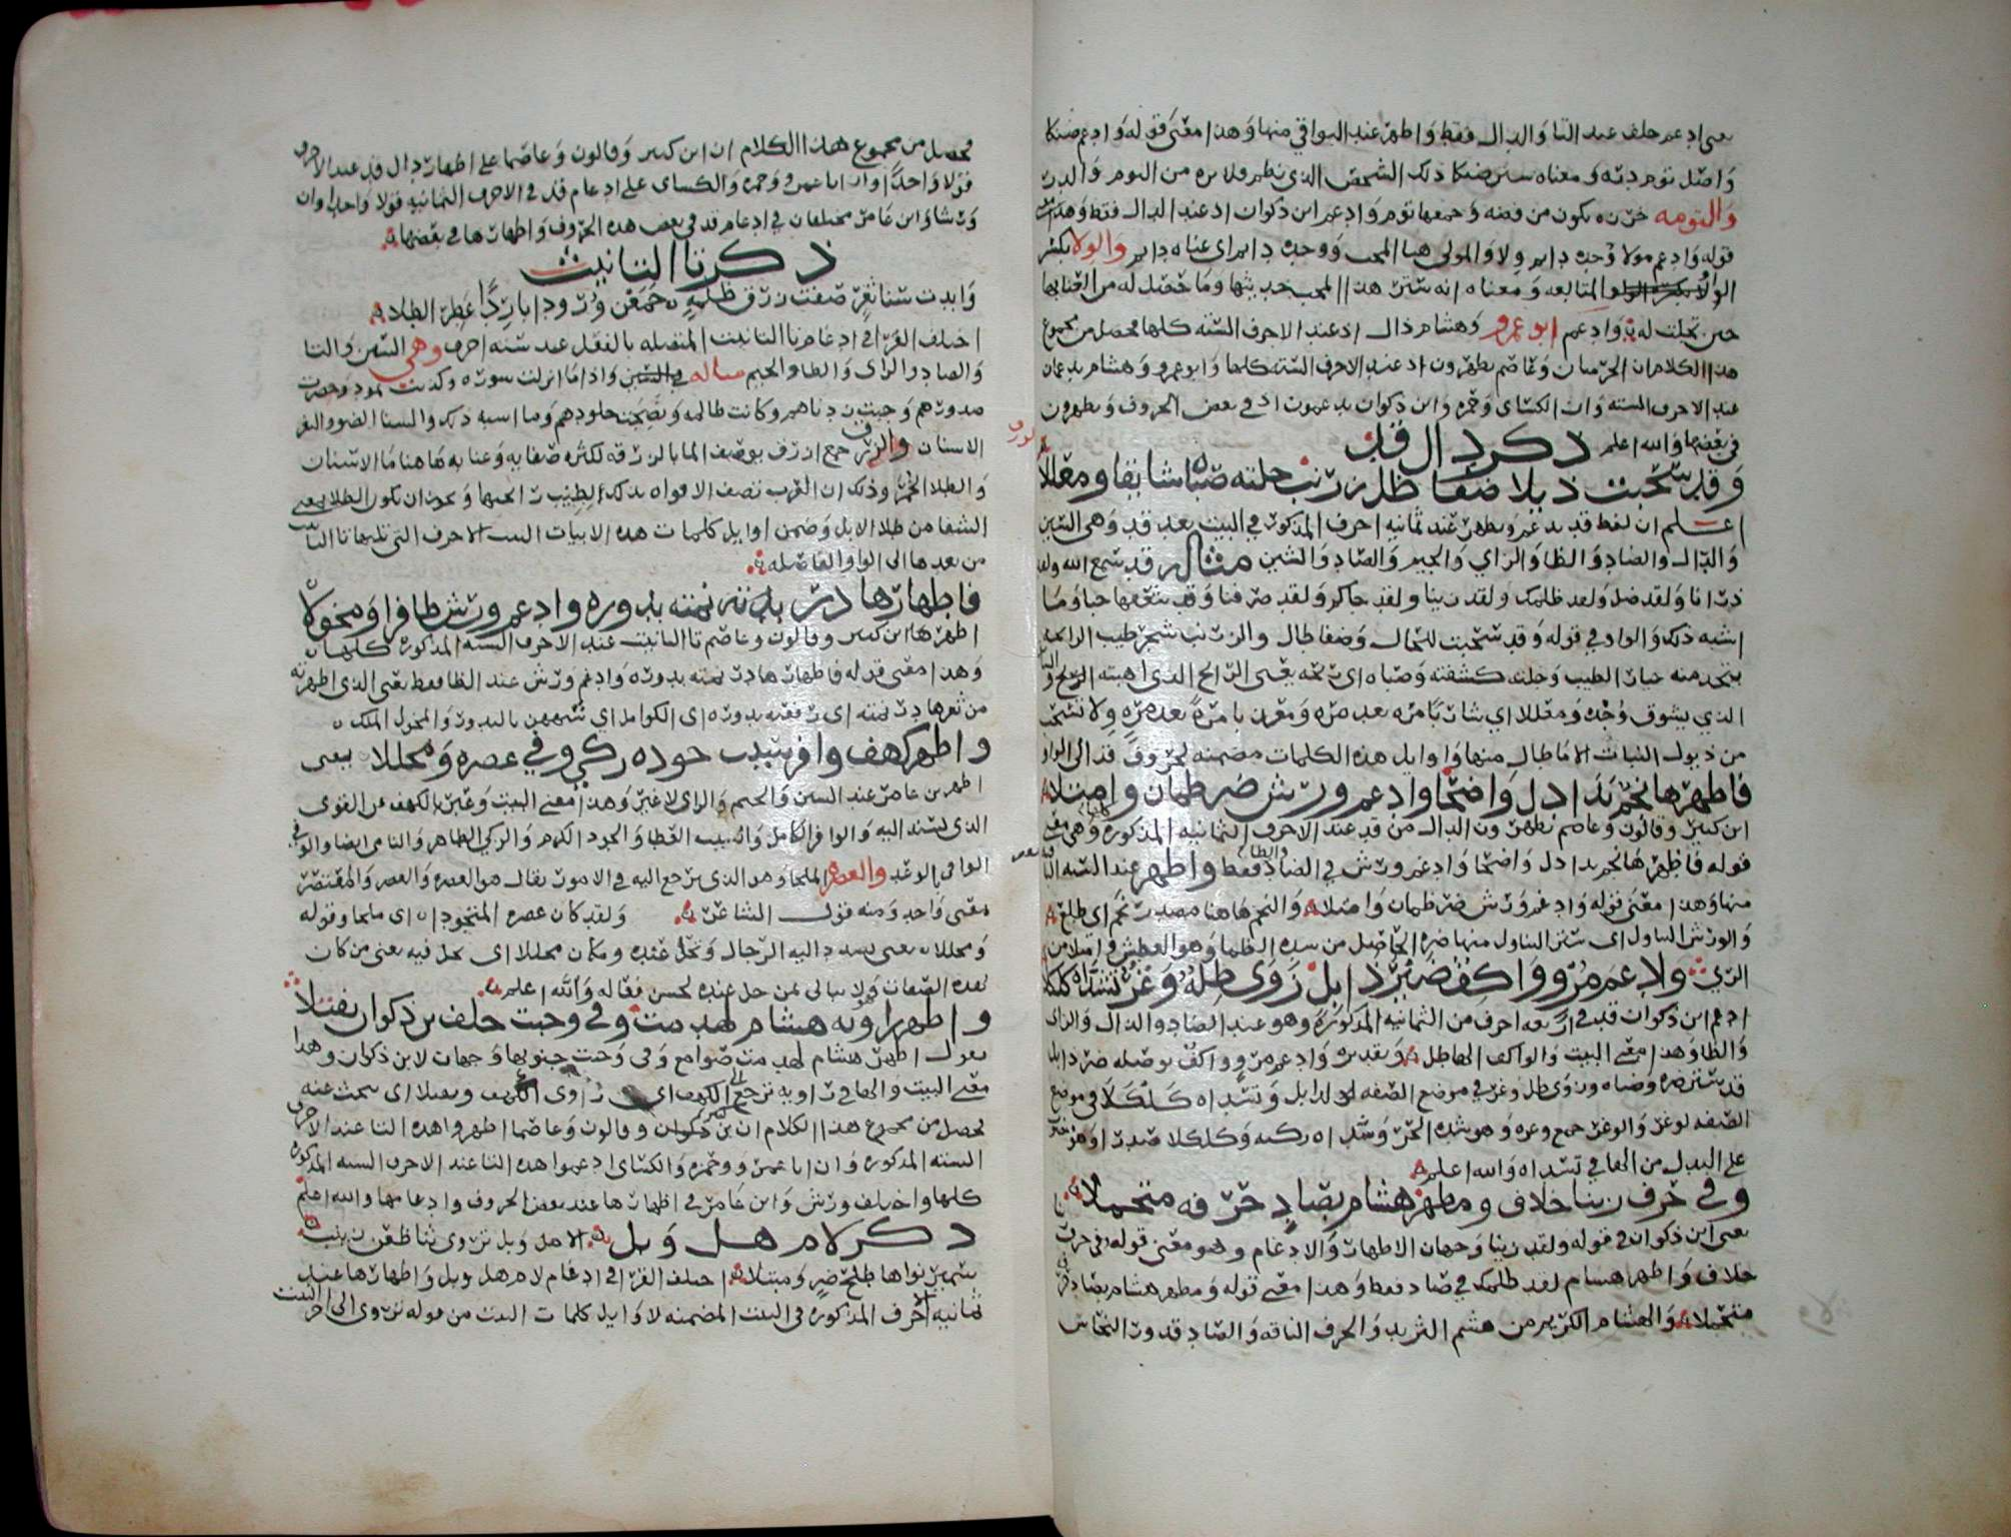 يعني ادغم خلف عند التا والدال فقط واظهر عند البواقي منها وهذا معنى قوله وادغم ضنكا
واصل توم دره ومعناه ستر ضنكا ذلك الشخص الذي نظم قلايده من التوم والدر
والتومه خرزه تكون من فضه وجمعها توم وادغم ابن ذكوان اذ عند الدال فقط وهذا
قوله وادغم مولا وجده دايم ولا والمولى هنا المحب ووجده دايم اي غناه دايم والولا بكسر
الواو المتابعه ومعناه انه ستر هذا المحب حديثها وما حصل له من
حين تجلت له وادغم ابو عمرو وهشام ذال اذ عند الاحرف السته كلها فحصل من مجموع
هذا الكلام ان الحرميان وعاصم يظهرون اذ عند الاحرف السته كلها وابو عمرو وهشام يدغمان
عند الاحرف السته وان الكسائي وحمزه وابن ذكوان يدغمون اذ في بعض الحروف ويظهرون
في بعضها والله اعلم ذكر دال قد
وقد سحبت ذيلا ضفا ظل زرنب جلته صباه شايقا ومعللا
اعلم ان لفظ قد يدغم ويظهر عند ثمانيه احرف المذكوره في البيت بعد قد وهي السين
والذال والضاد والظا والزاي والجيم والصاد والشين مثاله قد سمع الله ولقد
ذرانا ولقد ضل ولقد ظلمك ولقد زينا ولقد جاكم ولقد صرفنا وقد شغفها حبا وما
اشبه ذلك والواو في قوله وقد سحبت للحال وضفا طال والزرنب شجر طيب الرايحه
يتخذ منه الطيب وجلته كشفته وصباه اي ريحه يعني الريح الذي اهبته الريح
الذي يشوق وجده ومعللا اي شاربا مره بعد مره ومغرى بامره بعد مره ولا تسحب
من ذيول النبات الا ما طال منها واوايل هذه الكلمات مضمنه لحروف قد الى الواو
فاظهرها نجم بدا دل واضحا وادغم ورش ضر ظمان وامتلا
ابن كثير وقالون وعاصم يظهرون الدال من قد عند الاحرف الثمانيه المذكوره وهي معنى
قوله فاظهرها نجم بدا دل واضحا وادغم ورش في الضاد والظا فقط واظهر عند السته
منها وهذا معنى قوله وادغم ورش ضر ظمان وامتلا والنجم هاهنا مصدر نجم اي طلع
والورش التناول اي ستر التناول منها ضره الحاصل من شده الظما وهو العطش وامتلا من
الري وادغم مرو واكف ضير ذابل زوى ظله وغر تسداه كلكلا
ادغم ابن ذكوان قد في اربعه احرف من الثمانيه المذكوره وهو عند الضاد والذال والزاي
والظا وهذا معنى البيت والواكف الهاطل وتقديره وادغم مرو واكف بوصله ضر ذابل
قد ستر ضره وضناه وزوى ظل وغر في موضع الصفه لذابل وتسداه كلكلا في موضع
الصفه لوغر والوغر جمع وغره وهو شده الحر وتسداه ركبه وكلكلا صدرا
على البدل من الها في تسداه والله اعلم
وفي حرف زينا خلاف ومظهر هشام بصاد حرفه متحملا
يعني ابن ذكوان في قوله ولقد زينا وجهان الاظهار والادغام وهو معنى قوله وفي حرف
خلاف واظهر هشام لقد ظلمك في صاد فقط وهذا معنى قوله ومظهر هشام بصاد حرفه
متحملا والهشام الكريم من هشم الثريد والحرف الناقه والصاد قدور النحاس
فحصل من مجموع هذا الكلام ان ابن كثير وقالون وعاصما على اظهار دال قد عند الاحرف
قولا واحدا وان ابا عمرو وحمزه والكسائي على ادغام قد في الاحرف الثمانيه قولا واحدا وان
ورشا وابن عامر مختلفان في ادغام قد في بعض هذه الحروف واظهارها في بعضها
ذكر تا التانيث
وابدت سنا ثغر صفت زرق ظلمه جمعن ورودا باردا عطر الطلا
اختلف القرا في ادغام تا التانيث المتصله بالفعل عند سته احرف وهي السين والثا
والصاد والزاي والظا والجيم مثاله في السين واذا ما انزلت سوره وكذبت ثمود وحصرت
صدورهم وخبت زدناهم وكانت ظالمه ونضجت جلودهم وما اشبه ذلك والسنا الضوء والثغر
الاسنان والزرق جمع ازرق يوصف الما بالزرقه لكثره صفايه وعنا به هاهنا ما الاسنان
والطلا الخمر وذلك ان العرب تصف الافواه بذلك لطيب رايحتها ويجوز ان يكون الطلا بمعنى
الشفا من طلا الابل وضمن اوايل كلمات هذه الابيات الست الاحرف التي تليها تا التانيث
من بعدها الى الواو الفاصله
فاظهارها در نمته بدوره وادغم ورش ظافرا ومخولا
اظهرها ابن كثير وقالون وعاصم تا التانيث عند الاحرف السته المذكوره كلها
وهذا معنى قوله فاظهارها در نمته بدوره وادغم ورش عند الظا فقط يعني الذي اظهرته
من ثغرها در نمته اي رفعته بدوره اي الكوامل اي شبههن بالبدور والمخول المملك
واظهر كهف وافر سيب جوده زكي وفي عصره ومحللا يعني
اظهر ابن عامر عند السين والجيم والزاي لا غير وهذا معنى البيت وعبر بالكهف عن القوي
الذي يستند اليه والوافر الكامل والسيب العطا والجود الكرم والزكي الطاهر والنامي ايضا والوفي
الوافي بالوعد والعصره الملجا وهو الذي يرجع اليه في الامور يقال هو العصره والعصر والمعتصر
معنى واحد ومنه قول الشاعر ولقد كان عصره المنجود اي ملجا وقوله
ومحللا يعني يسد اليه الرجال وتحل عنده ومكان محللا اي يحل فيه يعني من كان
بهذه الصفات ولا يبالي بمن حل عنده لحسن فعاله والله اعلم
واظهر راويه هشام لهدمت وفي وجبت خلف ابن ذكوان يفتلا
يقول اظهر هشام لهدمت صوامع وفي وجبت جنوبها وجهان لابن ذكوان وهذا
معنى البيت والها في راويه ترجع الى الكهف اي راوي الكهف ويفتلا اي يبحث عنه
يحصل من مجموع هذا الكلام ان ابن كثير وقالون وعاصما اظهروا هذه التا عند الاحرف
السته المذكوره وان ابا عمرو وحمزه والكسائي ادغموا هذه التا عند الاحرف السته المذكوره
كلها واختلف ورش وابن عامر في اظهارها عند بعض الحروف وادغامها والله اعلم
ذكر لام هل وبل الا هل وبل تروي ثنا ظعن زينب
سمير نواها طلح ضر ومبتلا اختلف القرا في ادغام لام هل وبل واظهارها عند
ثمانيه احرف المذكوره في البيت المضمنه لاوايل كلمات البيت من قوله تروي الى اخر البيت